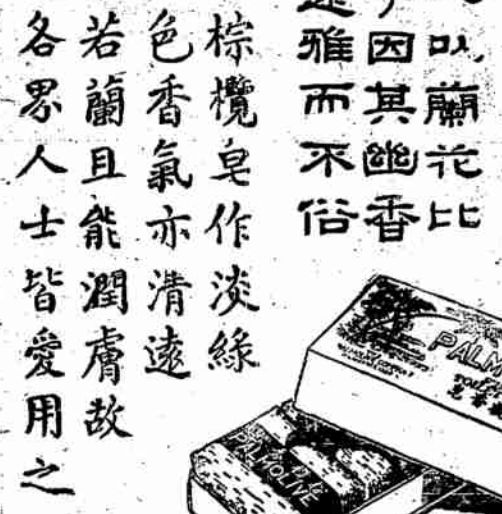 以蘭花比
因其幽香
遠雅而不俗
棕欖皂作淡綠
色香氣亦清遠
若蘭且能潤膚故
各界人士皆愛用之
PALM
PALMOLIVE